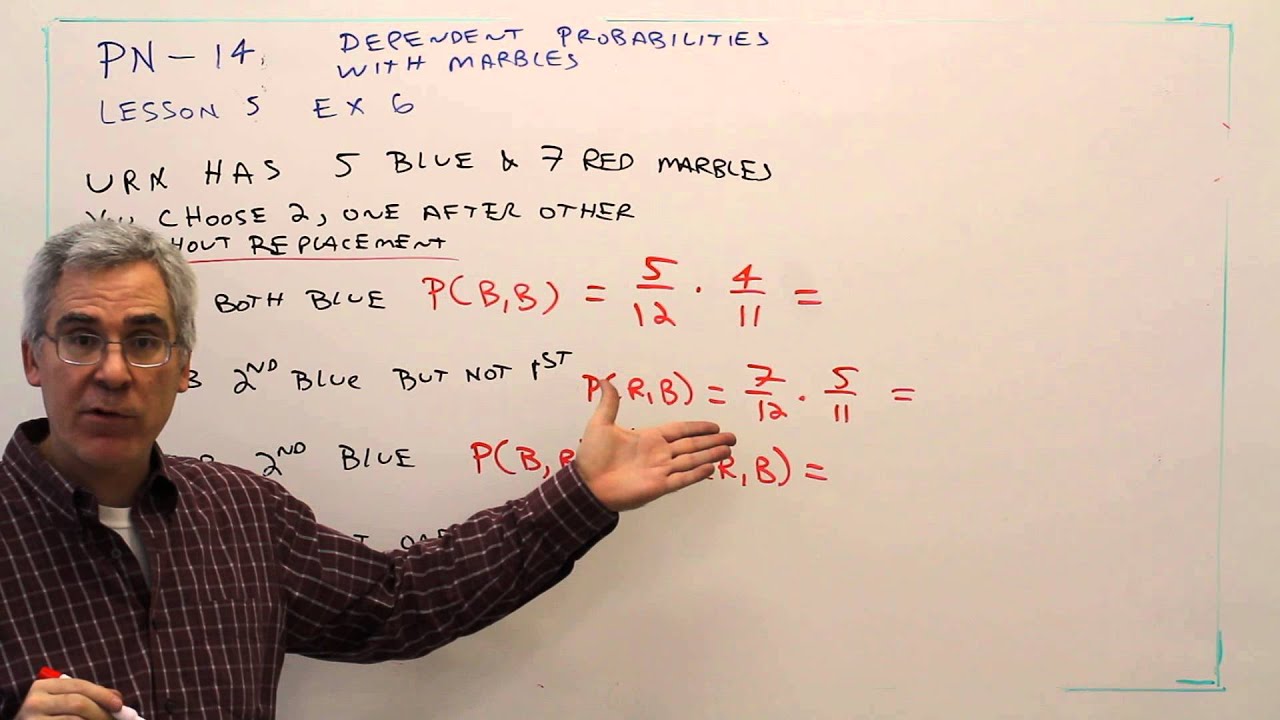 PN-14. DEPENDENT PROBABILITIES
WITH MARBLES
LESSON 5 EX 6
URN HAS 5 BLUE & 7 RED MARBLES
CHOOSE 2, ONE AFTER OTHER
HOUT REPLACEMENT
BOTH BLUE P(B,B) = 5/12 · 4/11 =
B 2ND BLUE BUT NOT 1ST P(R,B) = 7/12 · 5/11 =
2ND BLUE P(B, R,B) =